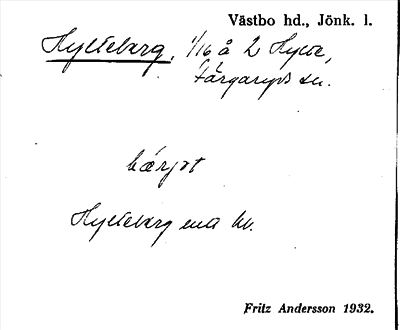 Västbo hd., Jönk. l.
Hylteberg, 1/16 å 2 Hylte,
Färgaryds sn.
bärjət
Hylteberg
Fritz Andersson 1932.